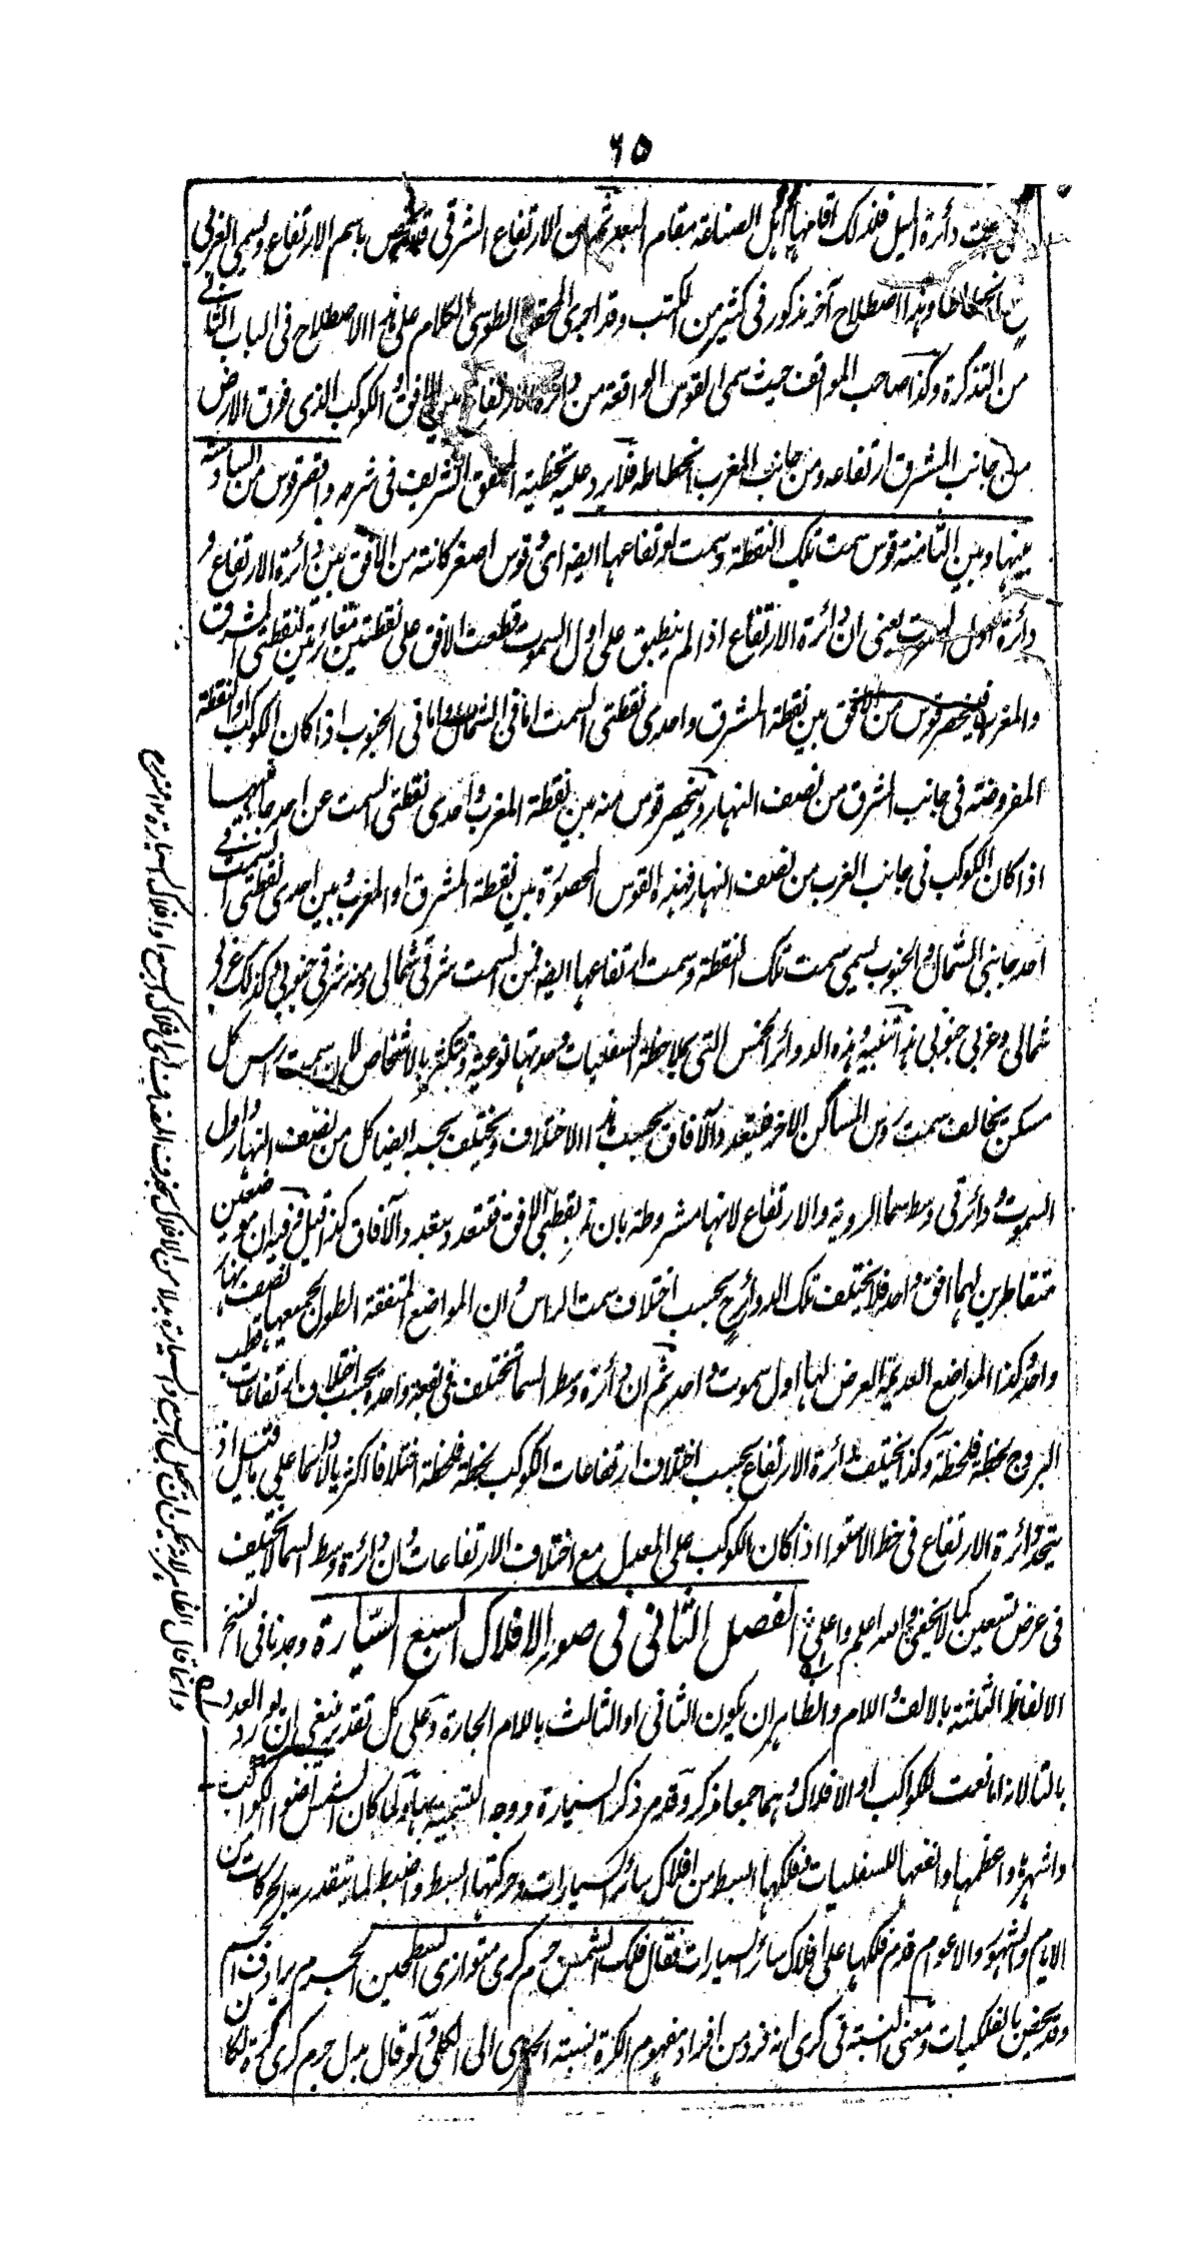 ٦٥
دائرة الميل فلذلك اقامها اهل الصناعة مقام البعد ثم من الارتفاع الشرقى قد يخص باسم الارتفاع ويسمى الغربى
انحطاطا وهذا اصطلاح آخر مذكور فى كثير من الكتب وقد اجرى المحقق الطوسى الكلام على هذا الاصطلاح فى الباب الثانى
من التذكرة وكذا صاحب المواقف حيث سمى القوس الواقعة من دائرة الارتفاع بين الافق والكوكب الذى فوق الارض
من جانب المشرق ارتفاعه ومن جانب المغرب انحطاطه فلا يرد عليه تخطية المحقق الشريف فى شرحه واقصر قوس من السادسة
بينها وبين الثامنة قوس سمت تلك النقطة وسمت ارتفاعها ايضا اى قوس اصغر كائنة من الافق بين دائرة الارتفاع و
دائرة اول السموت يعنى ان دائرة الارتفاع اذا لم ينطبق على اول السموت قطعت الافق على نقطتين متغائرتين لنقطتى المشرق
والمغرب فينحصر قوس من الافق بين نقطة المشرق واحدى نقطتى السمت اما فى الشمال واما فى الجنوب اذا كان الكوكب او النقطة
المفروضة فى جانب الشرق من نصف النهار وينحصر قوس منه بين نقطة المغرب واحدى نقطتى السمت عن احد جانبيها
اذا كان الكوكب فى جانب الغرب من نصف النهار فهذه القوس المحصورة بين نقطة المشرق او المغرب وبين احدى نقطتى السمت فى
احد جانبى الشمال والجنوب يسمى سمت تلك النقطة وسمت ارتفاعها ايضا فمن السمت شرقى شمالى ومنه شرقى جنوبى وكذلك غربى
شمالى وغربى جنوبى تنبيه وهذه الدوائر الخمس التى بملاحظة السفليات وحدتها نوعية وتتكثر بالاشخاص لان سمت راس كل
مسكن يخالف سمت رؤس المساكن الاخر فيتعدد الآفاق بحسب هذا الاختلاف ويختلف بحسبه ايضا كل من نصف النهار واول
السموت ودائرتى وسط سماء الروية والارتفاع لانها مشروطة بان تمر بقطبى الافق فتتعدد بتعدد الآفاق كذا قيل وفيه ان موضعين
متقاطرين لهما افق واحد فلا يختلف تلك الدوائر ح بحسب اختلاف سمت الراس وان المواضع المتفقة الطول لجميعها نصف نهار
واحد وكذا المواضع العديمة العرض لها اول سموت واحد ثم ان دائرة وسط السماء تختلف فى بقعة واحدة بحسب اختلاف ارتفاعات قطب
البروج لحظة فلحظة وكذا يختلف دائرة الارتفاع بحسب اختلاف ارتفاعات الكوكب لحظة فلحظة اختلافا اكثريا لا دائما على ما قيل اذ
يتحد دائرة الارتفاع فى خط الاستواء اذا كان الكوكب على المعدل مع اختلاف الارتفاعات وان دائرة وسط السماء لا تختلف
فى عرض تسعين كما لا يخفى والله اعلم الفصل الثانى فى صور الافلاك السبع السيارة وجدنا فى النسخ
الالفاظ الثلثة بالالف واللام والظاهر ان يكون الثانى او الثالث باللام الجارة وعلى كل تقدير ينبغى ان يورد العدد
بالتاء لانه اما نعت للكواكب او الافلاك وهما جمعا مذكر وقد مر ذكر السيارة ووجه التسمية بها ولما كان الشمس اضوأ الكواكب
واشهرها واعظمها وانفعها للسفليات وفلكها ابسط من افلاك سائر السيارات وحركتها ابسط واضبط لما يتقدر به الحركات من
الايام والشهور والاعوام قدم فلكها على افلاك سائر السيارات فقال فلك الشمس جرم كرى متوازى السطحين الجرم يرادف الجسم
وقد يخص بالفلكيات ومعنى النسبة فى كرى انه فرد من افراد مفهوم الكرة نسبة الجزئى الى الكلى ولو قال بدل جرم كرى كرة لكان